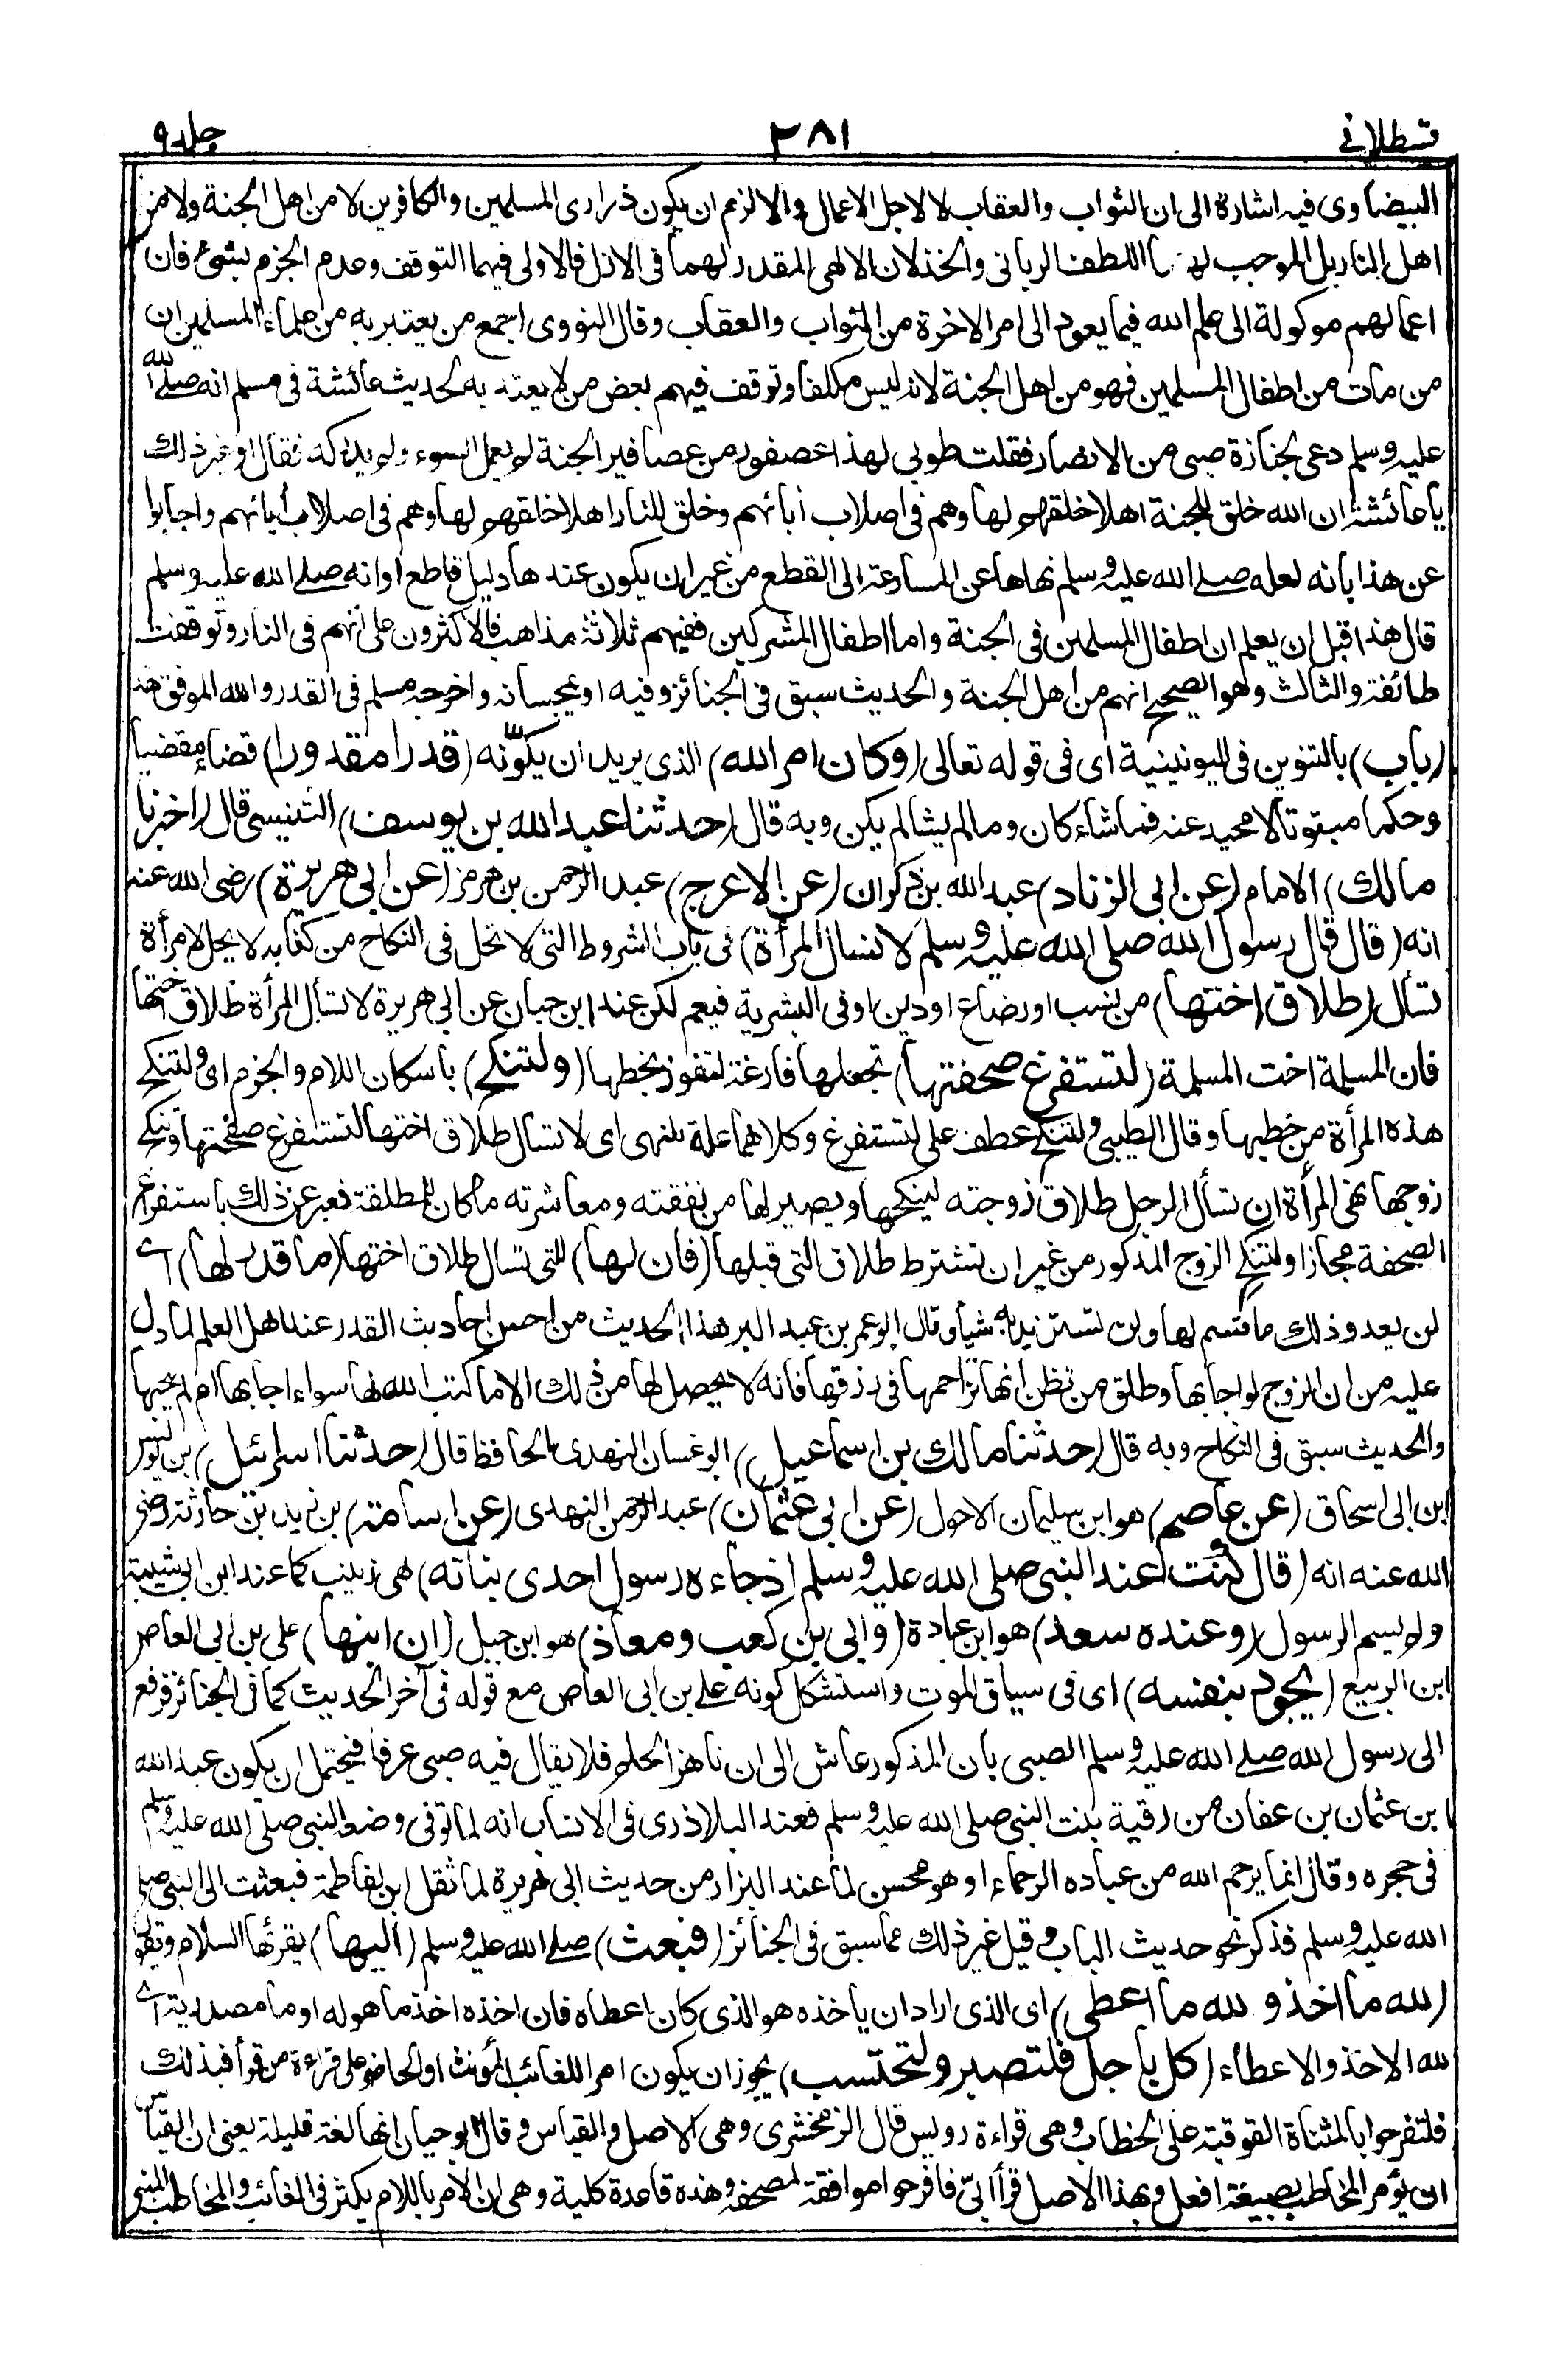 قسطلانے ٣٨١ جلد ٩
البيضاوى فيه اشارة الى ان الثواب والعقاب لا لاجل الاعمال والا لزم ان يكون ذرارى المسلمين والكافرين لا من اهل الجنة ولا من
اهل النار بل الموجب لهما اللطف الربانى والخذلان الالهى المقدر لهما فى الازل فالاولى فيهما التوقف وعدم الجزم بشئ فان
اعمالهم موكولة الى علم الله فيما يعود الى امر الاخرة من الثواب والعقاب وقال النووى اجمع من يعتبر به من علماء المسلمين ان
من مات من اطفال المسلمين فهو من اهل الجنة لانه ليس مكلفا وتوقف فيهم بعض من لا يعتد به لحديث عائشة فى مسلم انه صلے الله
عليه وسلم دعى لجنازة صبى من الانصار فقلت طوبى لهذا عصفور من عصافير الجنة لم يعمل السوء ولم يدركه فقال او غير ذلك
يا عائشة ان الله خلق للجنة اهلا خلقهم لها وهم فى اصلاب أبائهم وخلق للنار اهلا خلقهم لها وهم فى اصلاب أبائهم واجابوا
عن هذا بانه لعله صلے الله عليه وسلم نهاها عن المسارعة الى القطع من غير ان يكون عندها دليل قاطع او انه صلے الله عليه وسلم
قال هذا قبل ان يعلم ان اطفال المسلمين فى الجنة واما اطفال المشركين ففيهم ثلاثة مذاهب فالاكثرون على انهم فى النار وتوقفت
طائفة والثالث وهو الصحيح انهم من اهل الجنة والحديث سبق فى الجنائز وفيه او يمجسانه واخرجه مسلم فى القدر والله الموفق هذا
(باب) بالتنوين فى اليونينية اى فى قوله تعالى (وكان امر الله) الذى يريد ان يكوّنه (قدرا مقدورا) قضاء مقضيا
وحكما مبتوتا لا محيد عنه فما شاء كان وما لم يشا لم يكن وبه قال (حدثنا عبد الله بن يوسف) التنيسى قال (اخبرنا
مالك) الامام (عن ابى الزناد) عبد الله بن ذكوان (عن الاعرج) عبد الرحمن بن هرمز (عن ابى هريرة) رضى الله عنه
انه (قال قال رسول الله صلى الله عليه وسلم لا تسال المرأة) فى باب الشروط التى لا تحل فى النكاح من كتابه لا يحل لامرأة
تسأل (طلاق اختها) من نسب او رضاع او دين او فى البشرية فيعم لكن عند ابن حبان عن ابى هريرة لا تسأل المرأة طلاق اختها
فان المسلمة اخت المسلمة (لتستفرغ صحفتها) تجعلها فارغة لتفوز بحظها (ولتنكح) باسكان اللام والجزم اى ولتنكح
هذه المرأة من خطبها وقال الطيبى ولتنكح عطف على لتستفرغ وكلاهما علة للنهى اى لا تسال طلاق اختها لتستفرغ صحفتها وتنكح
زوجها نهى المرأة ان تسأل الرجل طلاق زوجته لينكحها ويصير لها من نفقته ومعاشرته ما كان للمطلقة فعبر عن ذلك باستفراغ
الصحفة مجازا ولتنكح الزوج المذكور من غير ان تشترط طلاق التى قبلها (فان لها) للتى تسال طلاق اختها (ما قدر لها) اے
لن يعدو ذلك ما قسم لها ولن تستزيد به شيأ وقال ابو عمر بن عبد البر هذا الحديث من احسن احاديث القدر عند اهل العلم لما دل
عليه من ان الزوج لو اجابها وطلق من تظن انها تزاحمها فى رزقها فانه لا يحصل لها من ذلك الا ما كتب الله لها سواء اجابها ام لم يجبها
والحديث سبق فى النكاح وبه قال (حدثنا مالك بن اسماعيل) ابو غسان النهدى الحافظ قال (حدثنا اسرائيل) بن يونس
ابن ابى اسحاق (عن عاصم) هو ابن سليمان الاحول (عن ابى عثمان) عبد الرحمن النهدى (عن اسامة) بن زيد بن حارثة رضى
الله عنه انه (قال كنت عند النبى صلى الله عليه وسلم اذ جاءه رسول احدى بناته) هى زينب كما عند ابن ابى شيبة
ولم يسم الرسول (وعنده سعد) هو ابن عبادة (وابى بن كعب ومعاذ) هو ابن جبل (ان ابنها) على بن ابى العاص
ابن الربيع (يجود بنفسه) اى فى سياق الموت واستشكل كونه على بن ابى العاص مع قوله فى آخر الحديث كما فى الجنائز فرفع
الى رسول الله صلے الله عليه وسلم الصبى بان المذكور عاش الى ان ناهز الحلم فلا يقال فيه صبى عرفا فيحتمل ان يكون عبد الله
ابن عثمان بن عفان من رقية بنت النبى صلى الله عليه وسلم فعند البلاذرى فى الانساب انه لما توفى وضعه النبى صلى الله عليه وسلم
فى حجره وقال انما يرحم الله من عباده الرحماء او هو محسن لما عند البزار من حديث ابى هريرة لما ثقل ابن لفاطمة فبعثت الى النبى صلى
الله عليه وسلم فذكر نحو حديث الباب وقيل غير ذلك مما سبق فى الجنائز (فبعث) صلے الله عليه وسلم (اليها) يقرئها السلام ويقول
(لله ما اخذ ولله ما اعطى) اى الذى اراد ان ياخذه هو الذى كان اعطاه فان اخذه اخذ ما هو له او ما مصدرية اے
لله الاخذ والاعطاء (كل باجل فلتصبر ولتحتسب) يجوز ان يكون امرا للغائب المؤنث او الحاضر على قراءة من قرأ فبذلك
فلتفرحوا بالمثناة الفوقية على الخطاب وهى قراءة رويس قال الزمخشرى وهى الاصل والقياس وقال ابو حيان انها لغة قليلة يعنى ان القياس
ان يؤمر المخاطب بصيغة افعل وبهذا الاصل قرأ ابىّ فافرحوا موافقة لمصحفه وهذه قاعدة كلية وهى ان الامر باللام يكثر فى الغائب والمخاطب المبنى